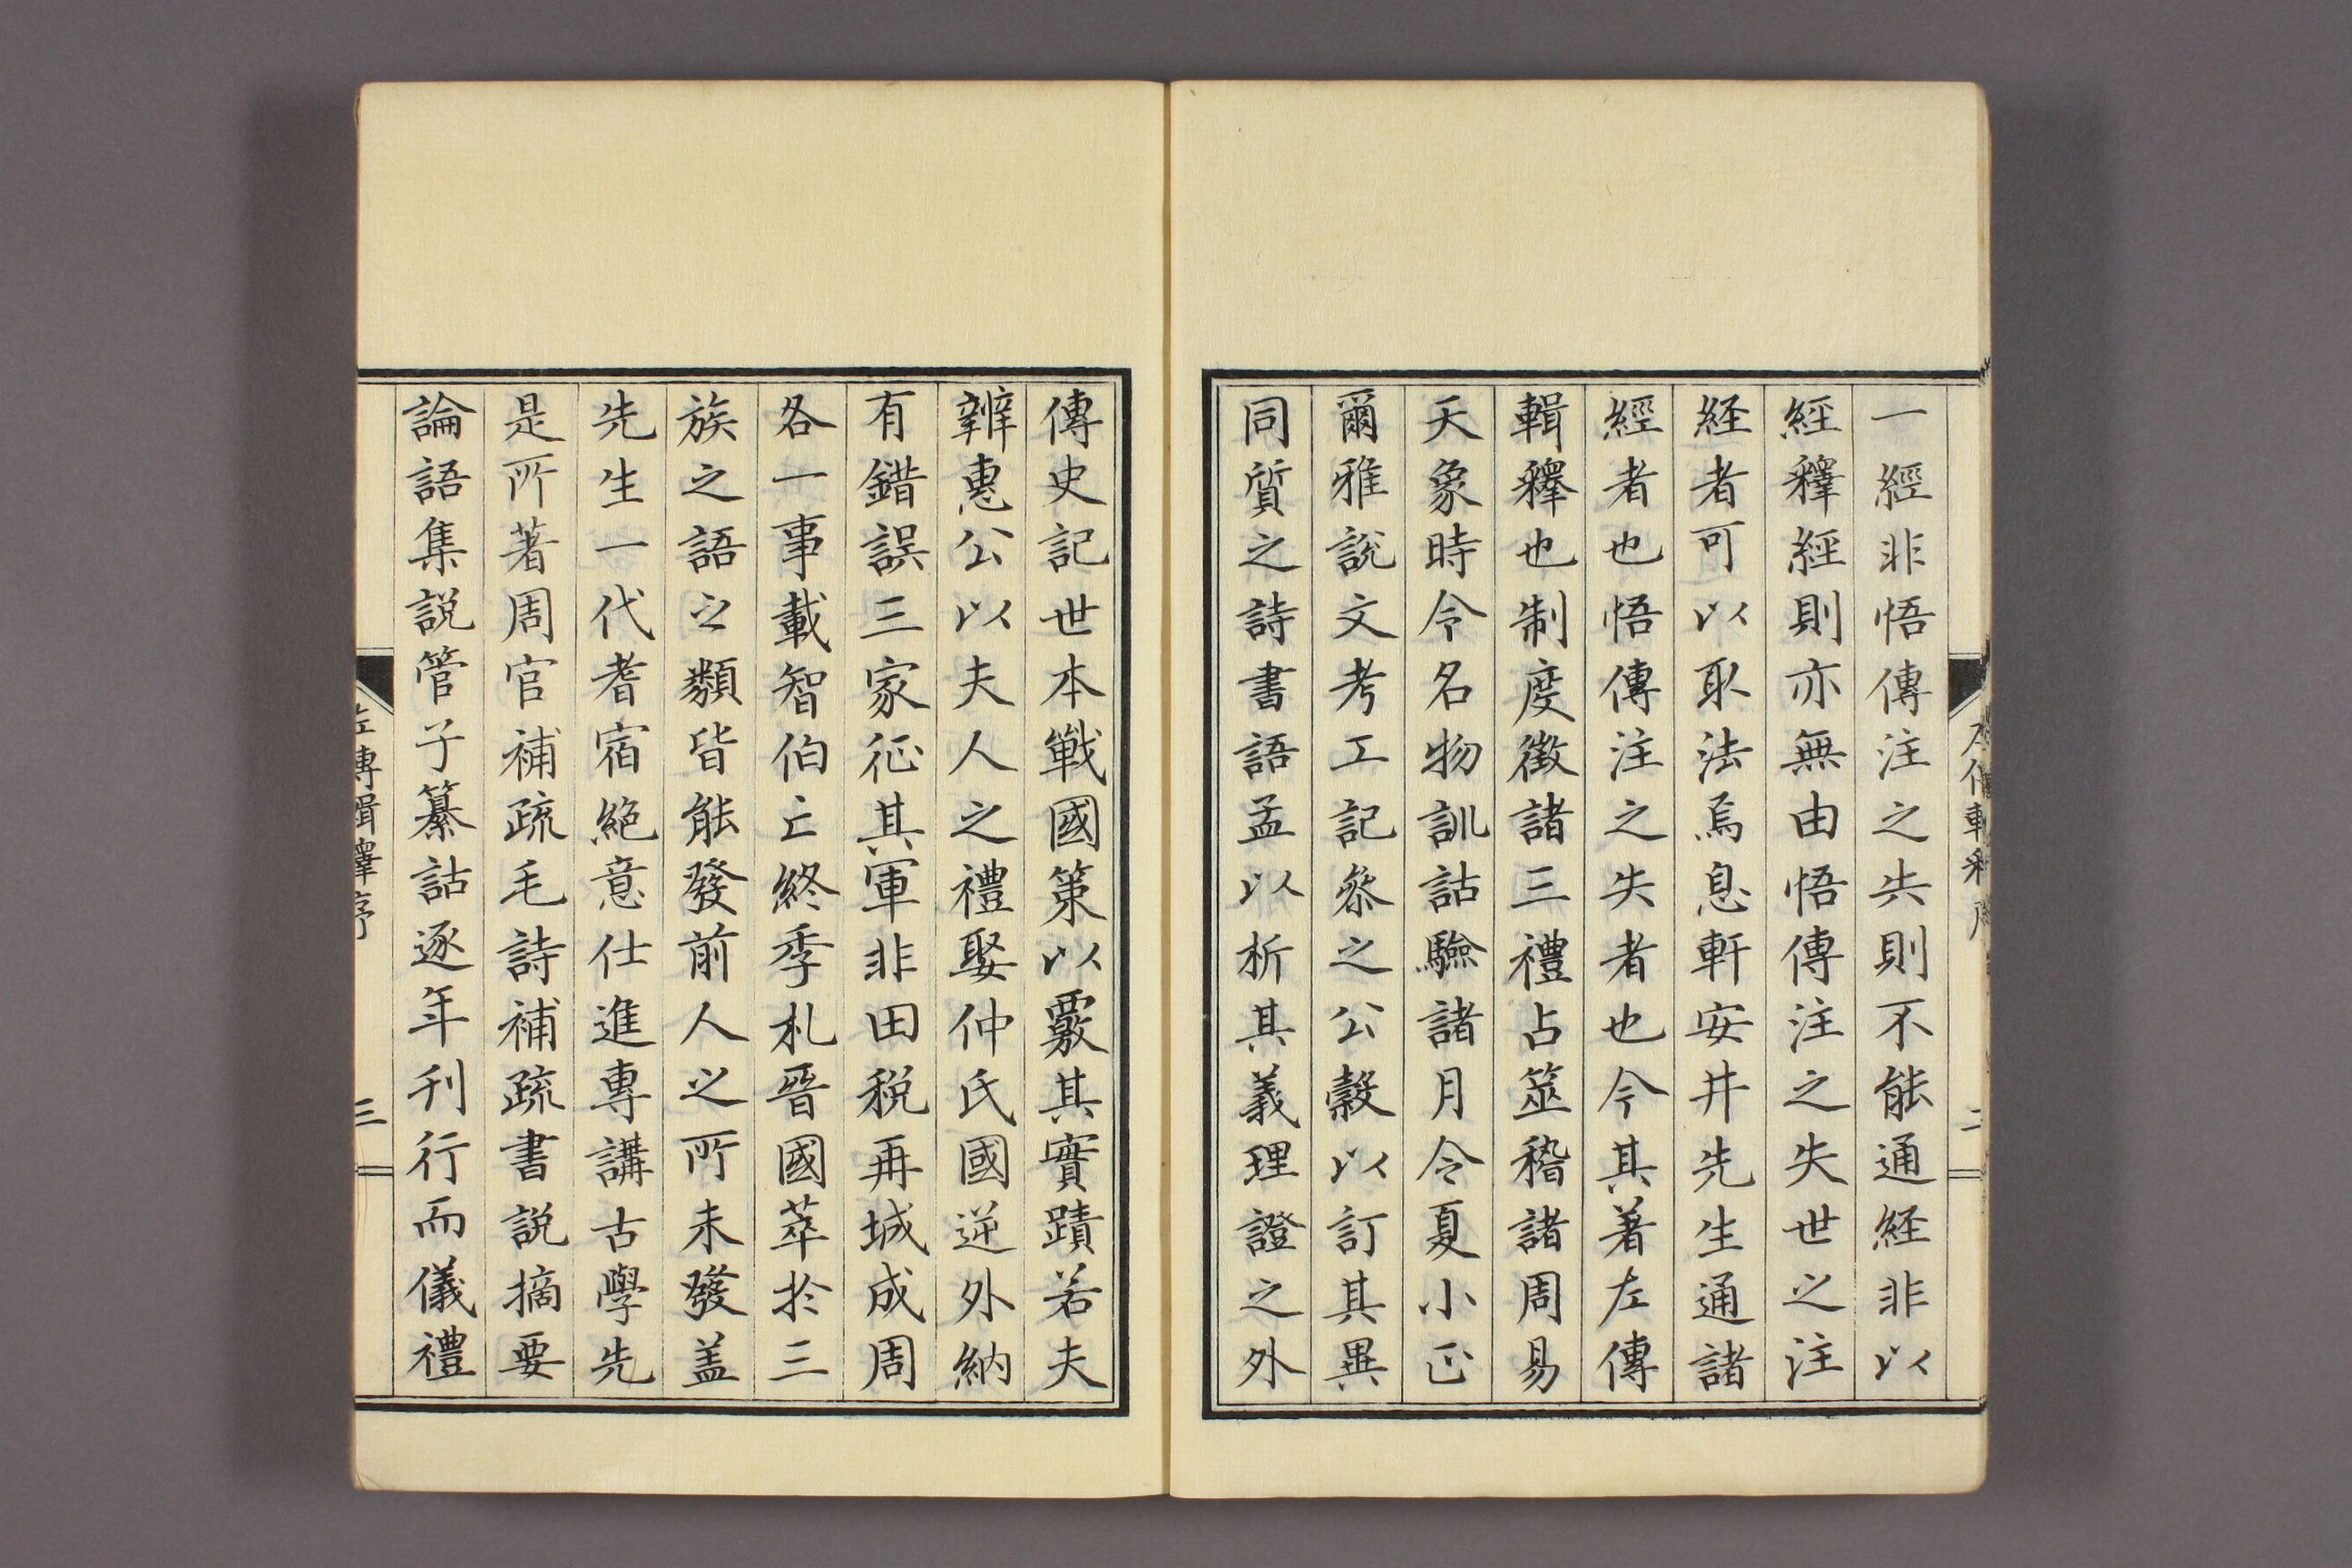 一經非悟傳注之失則不能通経非以
經釋經則亦無由悟傳注之失世之注
経者可以取法焉息軒安井先生通諸
經者也悟傳注之失者也今其著左傳
輯釋也制度徴諸三禮占筮稽諸周易
天象時令名物訓詁驗諸月令夏小正
爾雅說文考工記叅之公穀以訂其異
同質之詩書語孟以析其義理證之外
傳史記世本戰國策以覈其實蹟若夫
辨惠公以夫人之禮娶仲氏國逆外納
有錯誤三家征其軍非田税再城成周
各一事載智伯亡終季札晉國萃於三
族之語之類皆能發前人之所未發盖
先生一代耆宿絶意仕進專講古學先
是所著周官補疏毛詩補疏書説摘要
論語集説管子纂詁逐年刊行而儀禮
左傳輯釋序
三
二